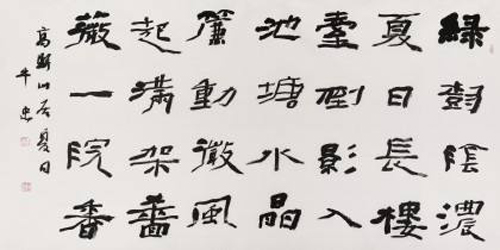 綠樹陰濃
夏日長樓
臺倒影入
池塘水晶
簾動微風
起滿架薔
薇一院香
高駢山居夏日